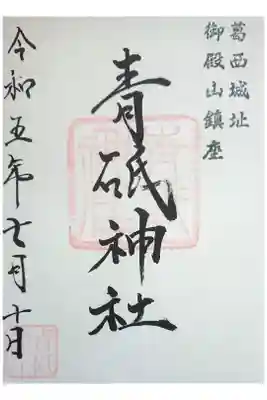 葛西城址
御殿山鎮座
青砥神社
令和五年七月十日